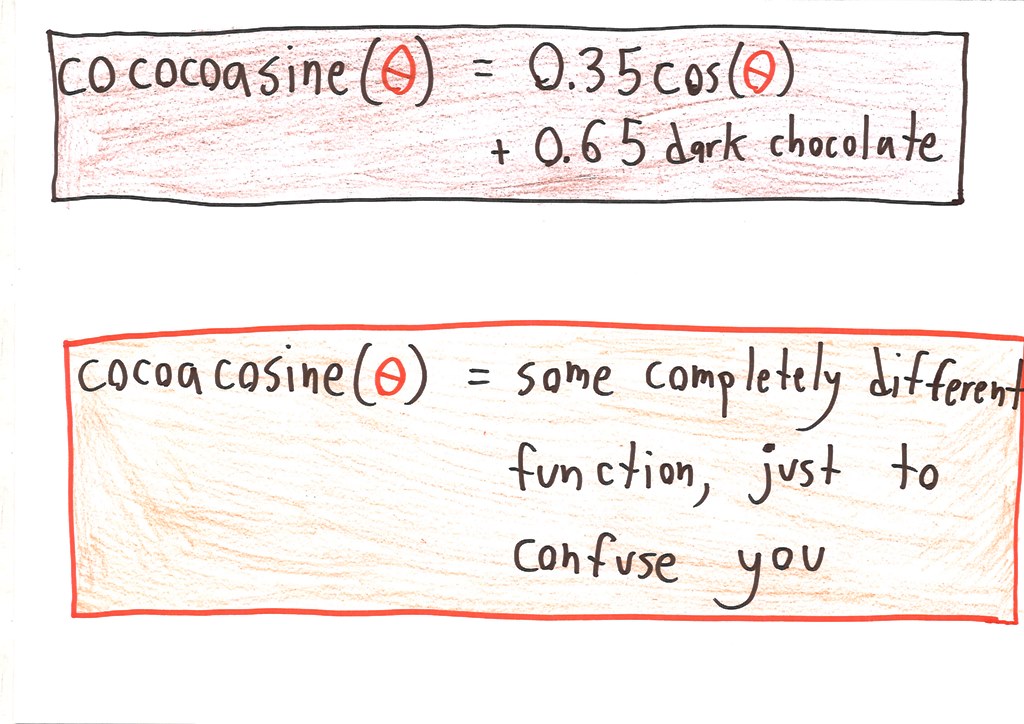 cococoasine(θ) = 0.35cos(θ)
+ 0.65 dark chocolate
cocoacosine(θ) = some completely different
function, just to
confuse you